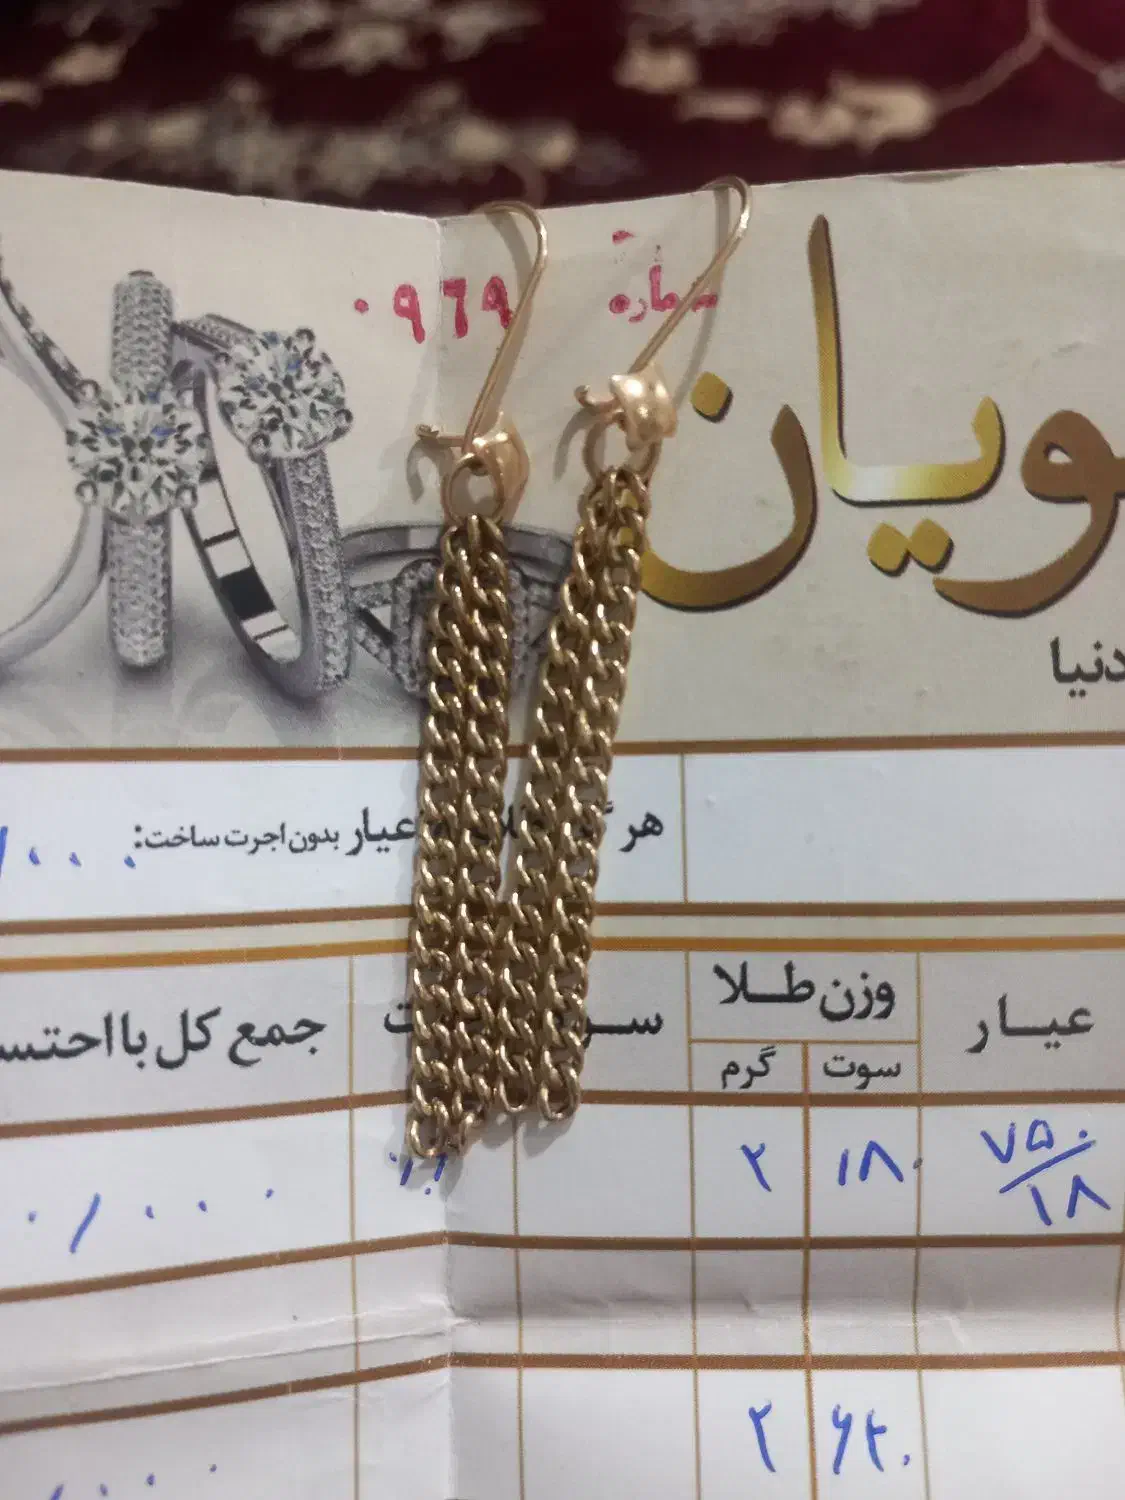 شماره ۰۹۶۹
ویان
دنیا
هر عیار بدون اجرت ساخت:
/۰۰۰
عیـــار
وزن طـــلا
سوت
گرم
جمع کل با احتس
۷۵۰/۱۸
۱۸۰
۲
۰/۰۰۰
۶۲۰
۲
۰۰۰